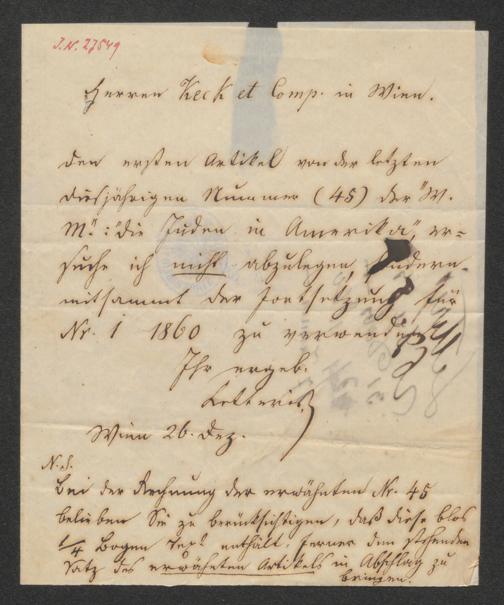 J.N. 27549
Herren Keck et Comp. in Wien.
Den ersten Artikel von der letzten
diesjährigen Nummer (45) der "W.
M.": "die Juden in Amerika", er=
suche ich nicht abzulegen, sondern
mitsammt der Fortsetzung für
Nr. 1 1860 zu verwenden
Ihr ergeb.
Letteris
Wien 26. Dez.
N.S.
Bei der Rechnung der erwähnten Nr. 45
belieben Sie zu berücksichtigen, daß diese blos
1/4 Bogen Text enthält; ferner den stehenden
Satz des erwähnten Artikels in Abschlag zu
bringen.